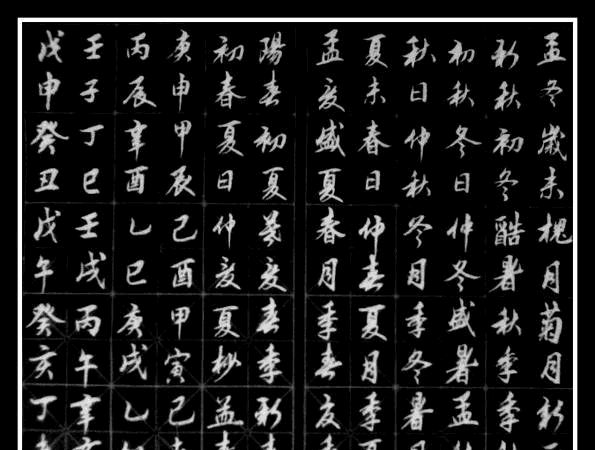 孟冬歲末槐月菊月新
新秋初冬酷暑秋季季
初秋冬日仲冬盛暑孟
秋日仲秋冬月季冬暑
夏末春日仲春夏月季
孟夏盛夏春月季春夏
陽春初夏暮夏春季新
初春夏日仲夏夏杪孟
庚申甲辰己酉甲寅己
丙辰辛酉乙巳庚戌乙
壬子丁巳壬戌丙午辛
戊申癸丑戊午癸亥丁